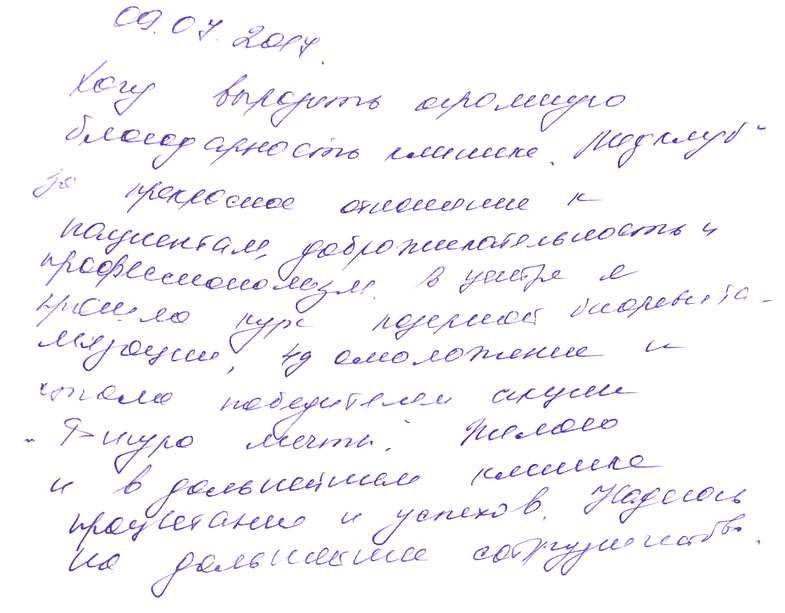 09.07.2017.
Хочу выразить огромную
благодарность клинике "Медклуб"
за прекрасное отношение к
пациентам, доброжелательность и
профессионализм. В центре я
прошла курс лазерной биоревита-
лизации, 4д омоложение и
стала победителем акции
"Фигура мечты". Желаю
и в дальнейшем клинике
процветание и успехов. Надеюсь
на дальнейшее сотрудничество.